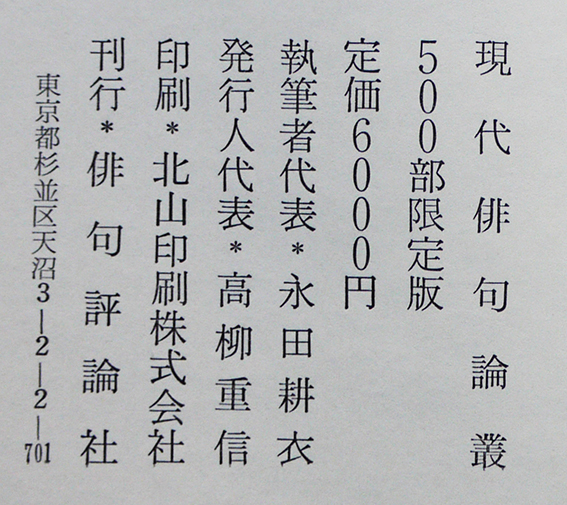 現代俳句論叢
500部限定版
定価6000円
執筆者代表*永田耕衣
発行人代表*高柳重信
印刷*北山印刷株式会社
刊行*俳句評論社
東京都杉並区天沼3-2-2-701